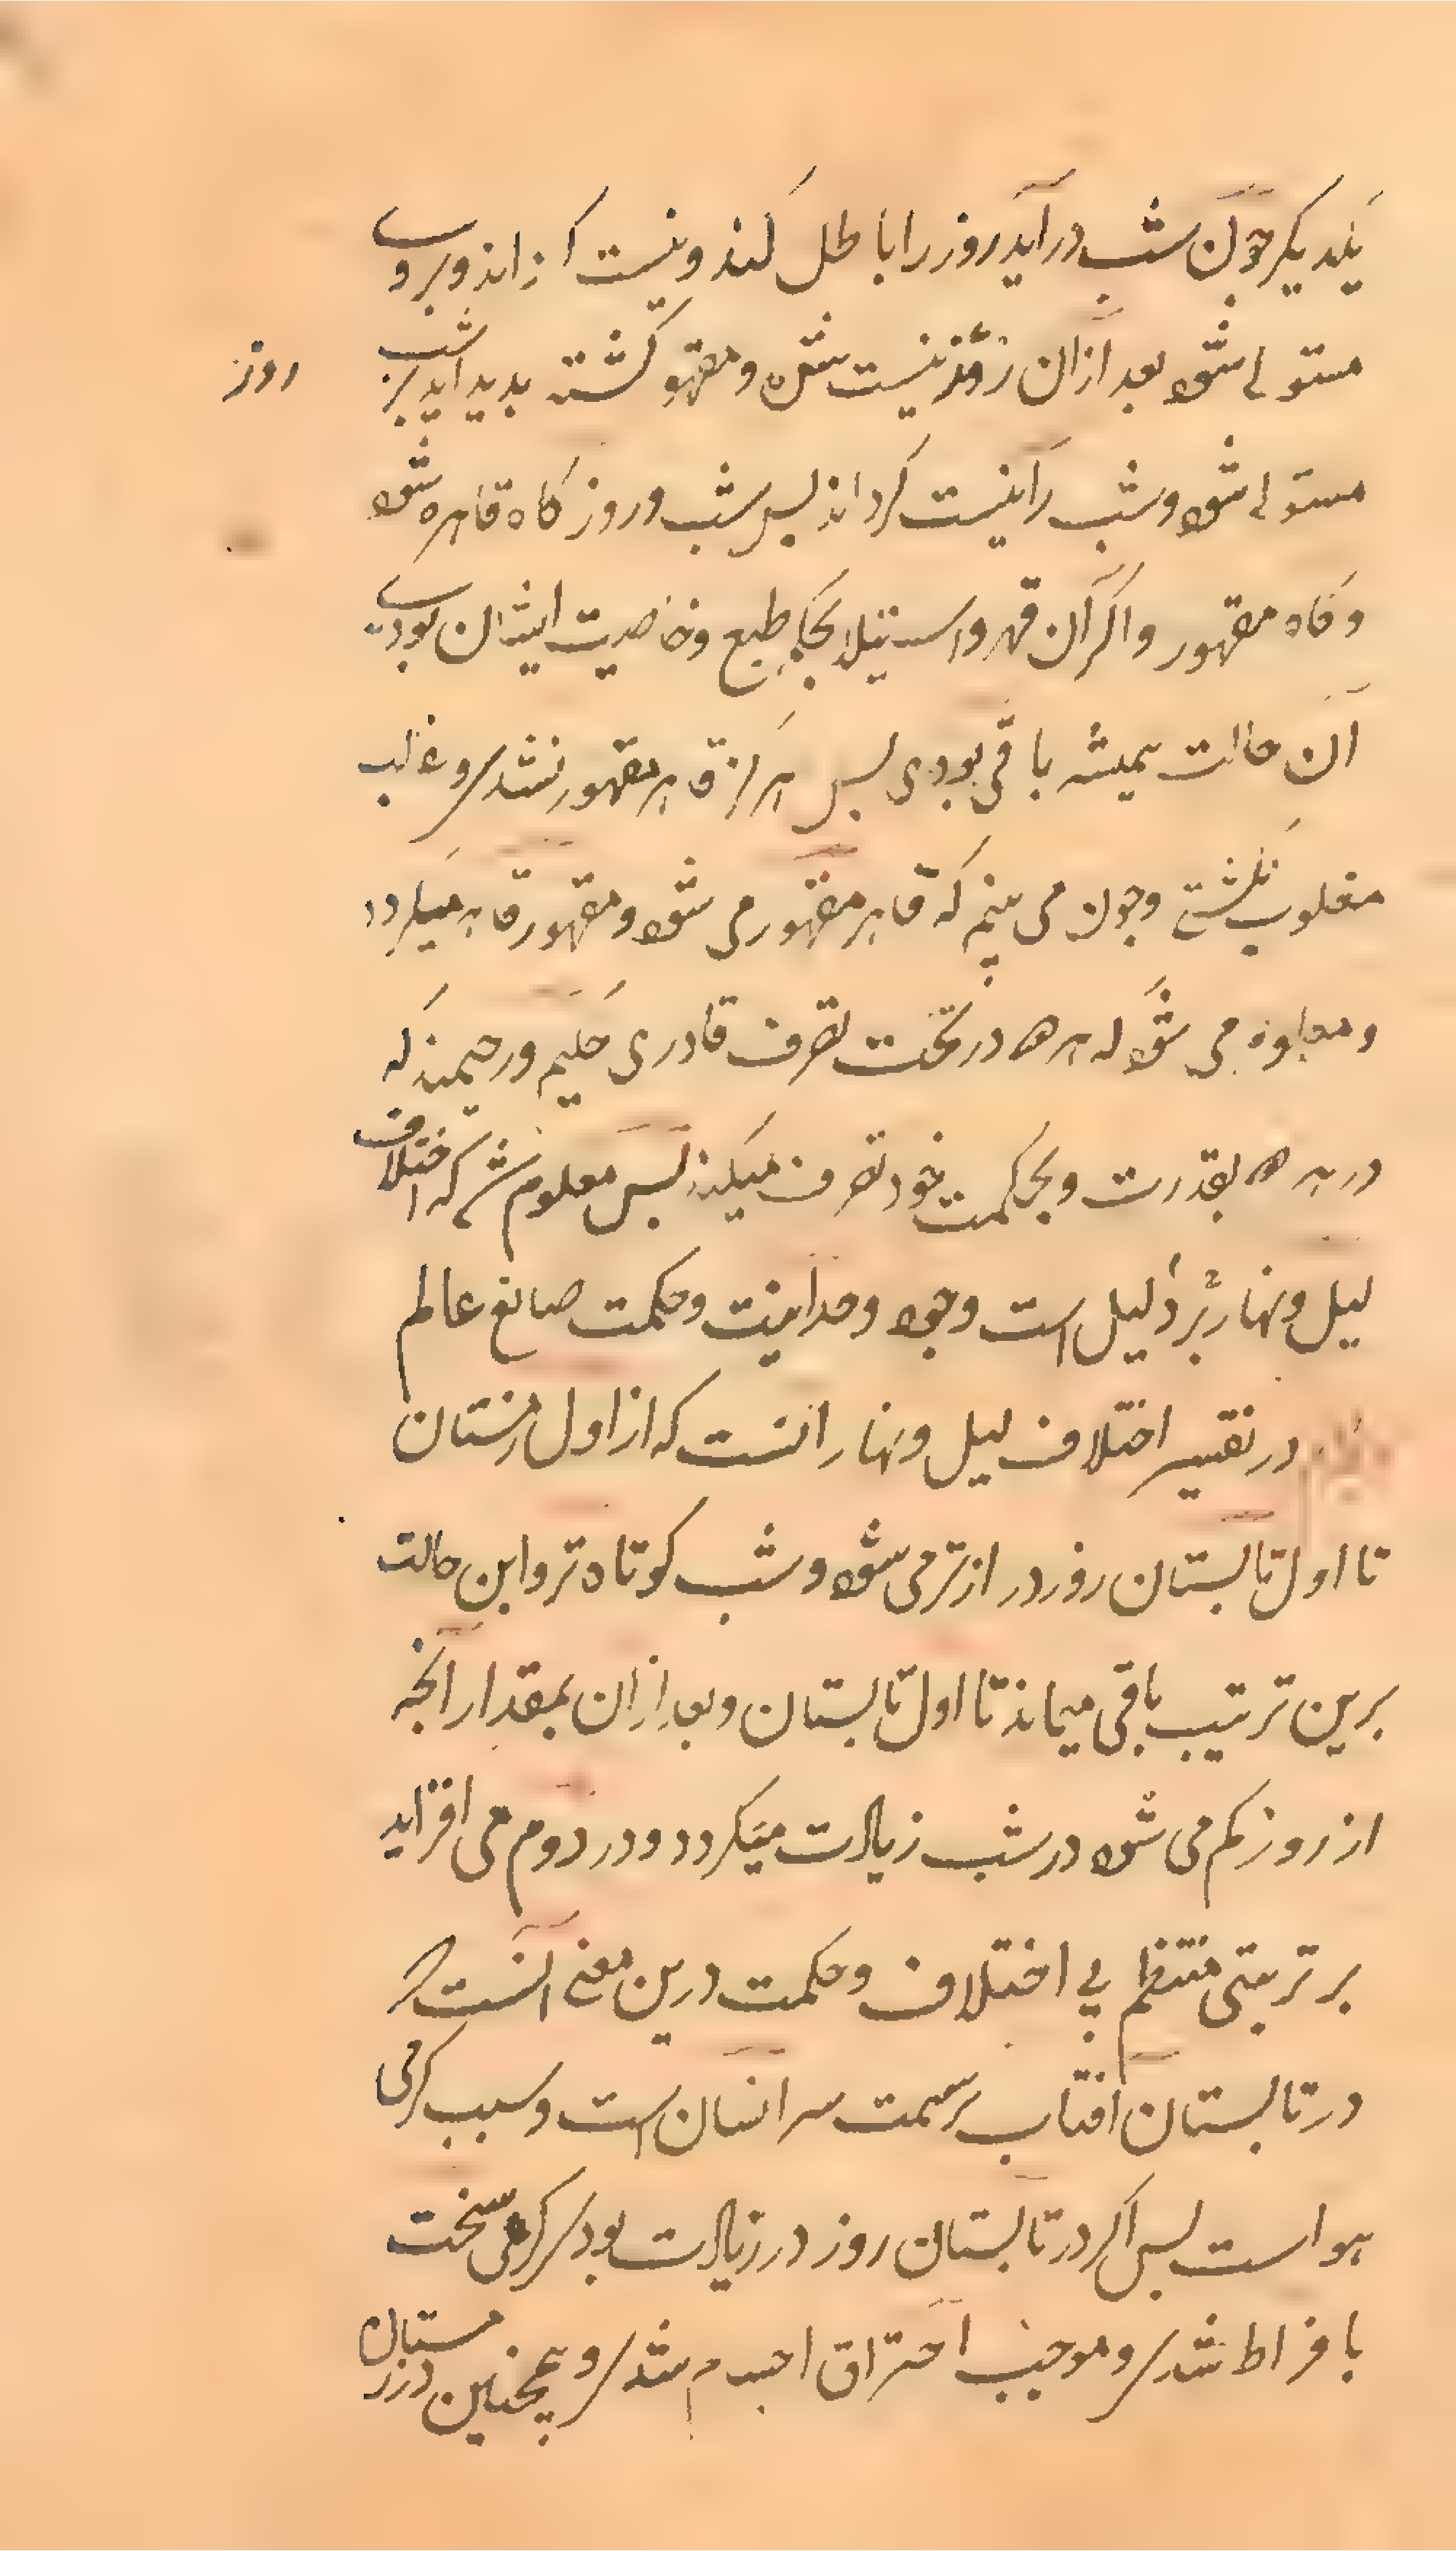 یکدیگر چون شب درآید روز را باطل کند و نیست گرداند و بروی
مستولی شود بعد ازان روز نیست شده و مقهور گشته بدید اید بر شب
روز
مستولی شود و شب را نیست کرداند پس شب و روز کاه قاهره شود
و کاه مقهور و اکر آن قهر و استیلا بحکم طبع و خاصیت ایشان بودی
آن حالت همیشه باقی بودی پس هرکز قاهر مقهور نشدی و غالب
مغلوب نکشتی و چون می بینم که قاهر مقهور می شود و مقهور قاهر میکردد
و معلوم می شود که هر دو در تحت تصرف قادری حکیم و رحیمند که
در هر دو بقدرت و بحکمت خود تصرف میکند پس معلوم شد که اختلاف
لیل و نهار بر دلیل است وجود وحدانیت و حکمت صانع عالم
در تفسیر اختلاف لیل و نهار انست که از اول زمستان
تا اول تابستان روز دراز تر می شود و شب کوتاه تر و این حالت
برین ترتیب باقی میماند تا اول تابستان و بعد ازان بمقدار آنچه
از روز کم می شود در شب زیادت میکردد و در دوم می افزاید
بر ترتیبی منتظم بی اختلاف و حکمت درین معنی آنست که
در تابستان آفتاب بر سمت سر انسان است و سبب کرمی
هواست پس اکر در تابستان روز در زیادت بودی کرمی سخت
بافراط شدی و موجب احتراق اجسام شدی و همچنین در زمستان